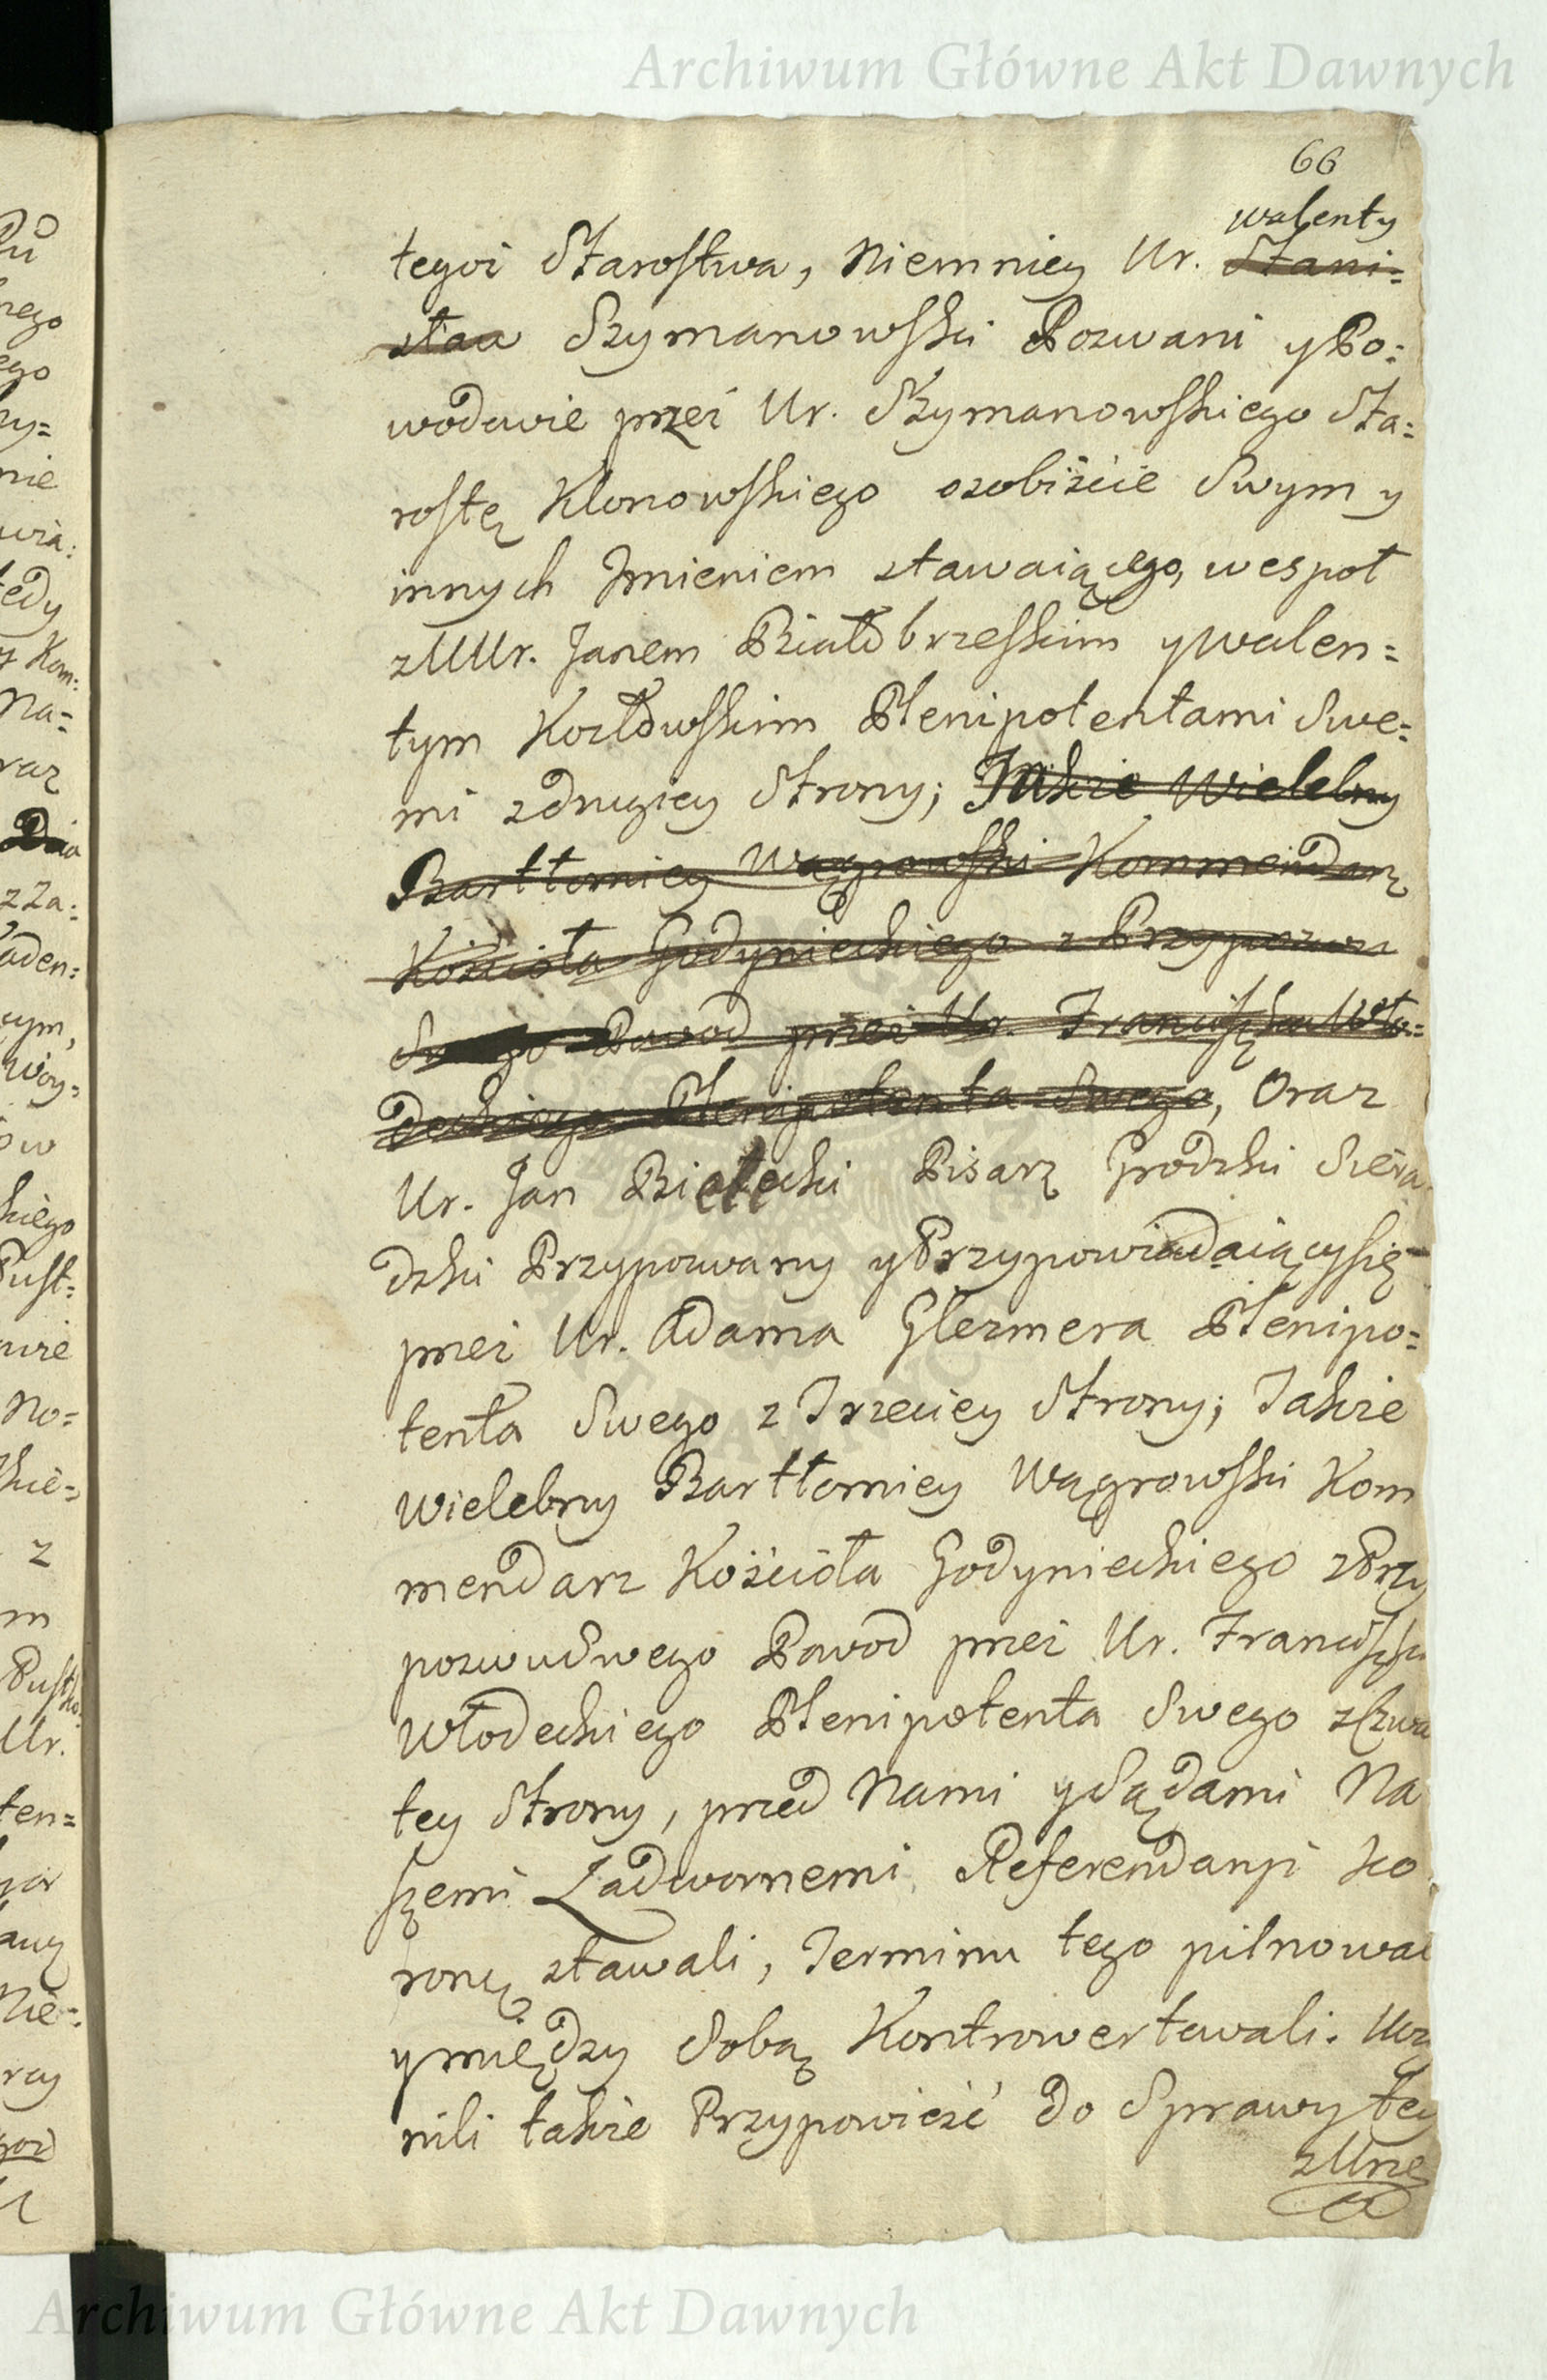 Archiwum Główne Akt Dawnych
66
walenty
tegoż Starostwa, Niemniey Ur. Stani=
sław Szymanowski Pozwani y Po=
wodowie przez Ur. Szymanowskiego Sta=
rostę Klonowskiego osobiście Swym y
innych Imieniem stawaiącego, wespoł
z UUr. Janem Białobrzeskim y Walen=
tym Kozłowskim Plenipotentami Swe=
mi z drugiey Strony; Także Wielebny
Bartłomiey Wągrowski Kommendarz
Kościoła Godynieckiego z Przypozwu
Swego Powod przez Ur. Franciszka Wło=
deckiego Plenipotenta Swego, Oraz
Ur. Jan Bielecki Pisarz Grodzki Siera
dzki Przypozwany y Przypowiadaiący się
przez Ur. Adama Glezmera Plenipo=
tenta Swego z Trzeciey Strony; Także
Wielebny Bartłomiey Wągrowski Kom
mendarz Kościoła Godynieckiego z Przy
pozwu Swego Powod przez Ur. Franciszka
Włodeckiego Plenipotenta Swego z Czwar
tey Strony, przed Nami y Sądami Na
szemi Zadwornemi Referendaryi Ko
ronney stawali, Terminu tego pilnowali
y między Sobą Kontrowertowali. Uczy
nili także Przypowieść do Sprawy tey
z Urzę
Archiwum Główne Akt Dawnych